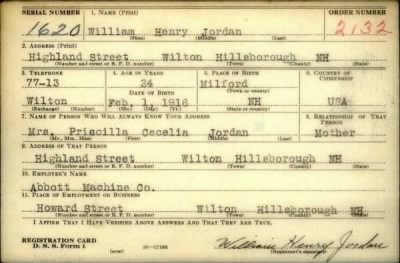 SERIAL NUMBER 1. NAME (Print) ORDER NUMBER
1620 William Henry Jordan 2132
(First) (Middle) (Last)
2. ADDRESS (Print)
Highland Street Wilton Hillsborough NH
(Number and street or R. F. D. number) (Town) (County) (State)
3. TELEPHONE 4. AGE IN YEARS 5. PLACE OF BIRTH 6. COUNTRY OF CITIZENSHIP
77-13 24 Milford
DATE OF BIRTH (Town or county)
Wilton Feb. 1, 1916 NH USA
(Exchange) (Number) (Mo.) (Day) (Yr.) (State or country)
7. NAME OF PERSON WHO WILL ALWAYS KNOW YOUR ADDRESS 8. RELATIONSHIP OF THAT PERSON
Mrs. Priscilla Cecelia Jordan Mother
(Mr., Mrs., Miss) (First) (Middle) (Last)
9. ADDRESS OF THAT PERSON
Highland Street Wilton Hillsborough NH
(Number and street or R. F. D. number) (Town) (County) (State)
10. EMPLOYER'S NAME
Abbott Machine Co.
11. PLACE OF EMPLOYMENT OR BUSINESS
Howard Street Wilton Hillsborough NH
(Number and street or R. F. D. number) (Town) (County) (State)
I AFFIRM THAT I HAVE VERIFIED ABOVE ANSWERS AND THAT THEY ARE TRUE.
REGISTRATION CARD
D. S. S. Form 1 (over) 16-17105 William Henry Jordan
(Registrant's signature)